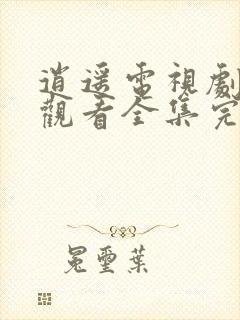 逍遥電視劇
觀看全集完
冕璽葉